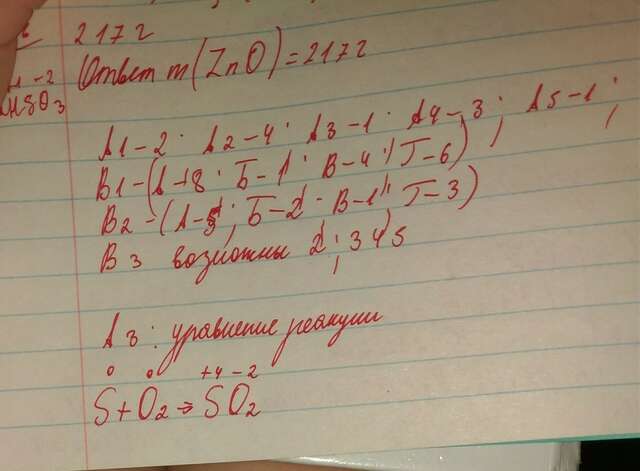 217 г
Ответ m(ZnO) = 217 г
-2
HSO3
А1-2; А2-4; А3-1; А4-3; А5-1;
В1-(А-8; Б-1; В-4; Г-6)
В2-(А-5; Б-2; В-1; Г-3)
В3 возможны 2; 3 4 5
А3: уравнение реакции
0 0 +4 -2
S+O2→SO2